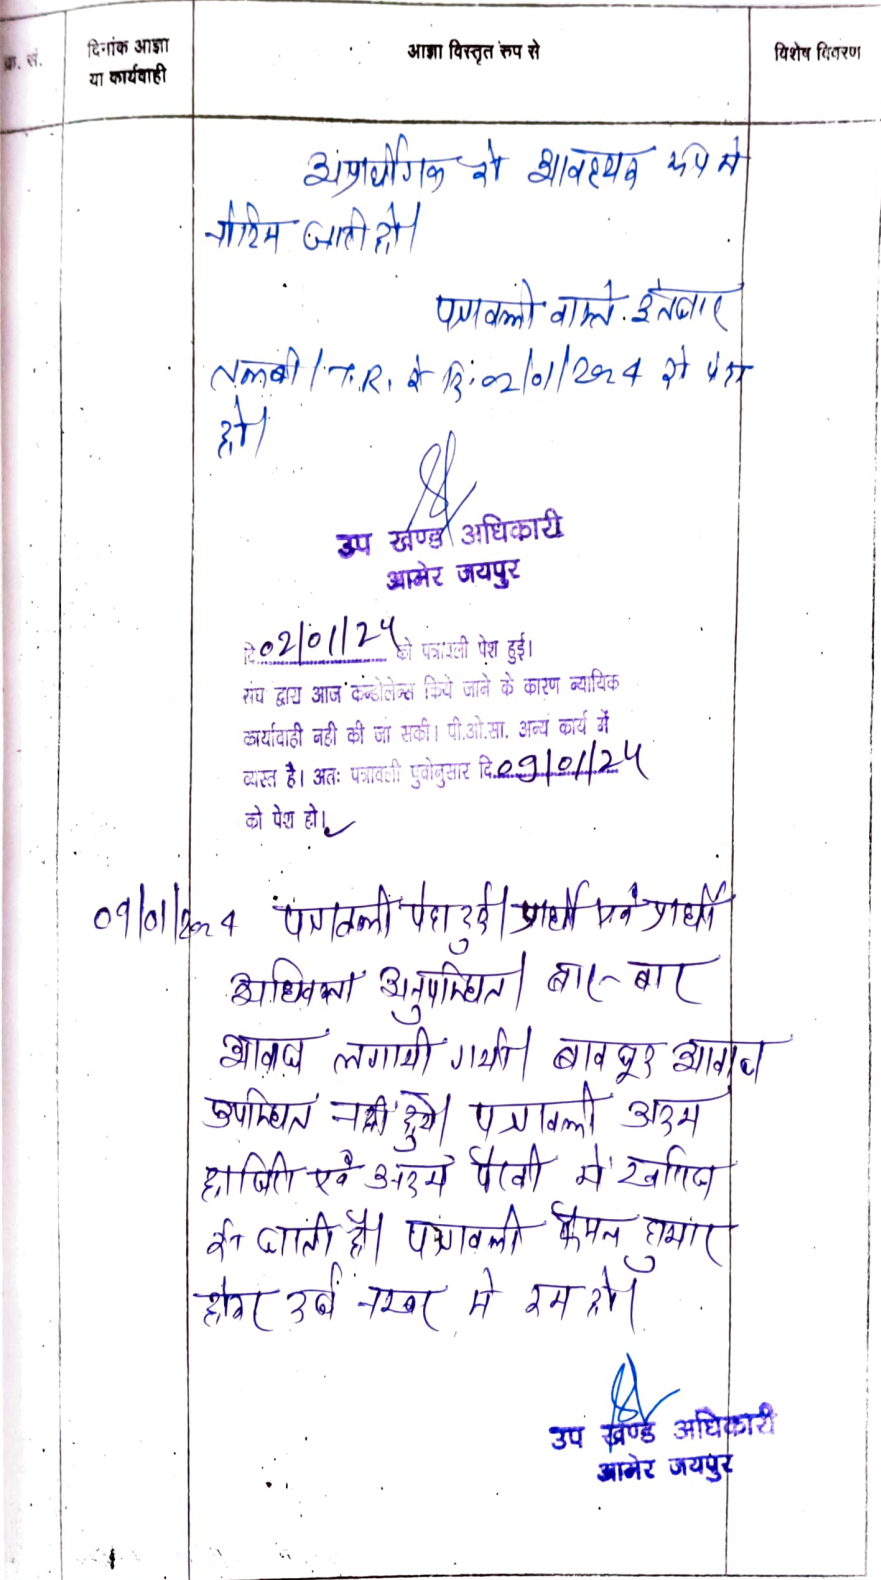 क्र. सं.
दिनांक आज्ञा या कार्यवाही
आज्ञा विस्तृत रूप से
विशेष विवरण
अप्रार्थीगण को आवश्यक रूप से
नोटिस जारी हो।
पत्रावली वास्ते इन्तजार
तलबी / T.R. के दि. 02/01/2024 को पेश
हो।
उप खण्ड अधिकारी
आमेर जयपुर
दि. 02/01/24 को पत्रावली पेश हुई।
संघ द्वारा आज कन्डोलेन्स किये जाने के कारण न्यायिक
कार्यावाही नही की जा सकी। पी.ओ.सा. अन्य कार्य में
व्यस्त है। अतः पत्रावली पुर्वानुसार दि. 09/01/24
को पेश हो।
09/01/2024 पत्रावली पेश हुई। प्रार्थी एवं प्रार्थी
अधिवक्ता अनुपस्थित। बार-बार
आवाज लगायी गयी। बावजूद आवाज
उपस्थित नहीं हुये। पत्रावली अदम
हाजिरी एवं अदम पैरवी में खारिज
की जाती है। पत्रावली फैसल शुमार
होकर दर्ज नम्बर से कम हो।
उप खण्ड अधिकारी
आमेर जयपुर